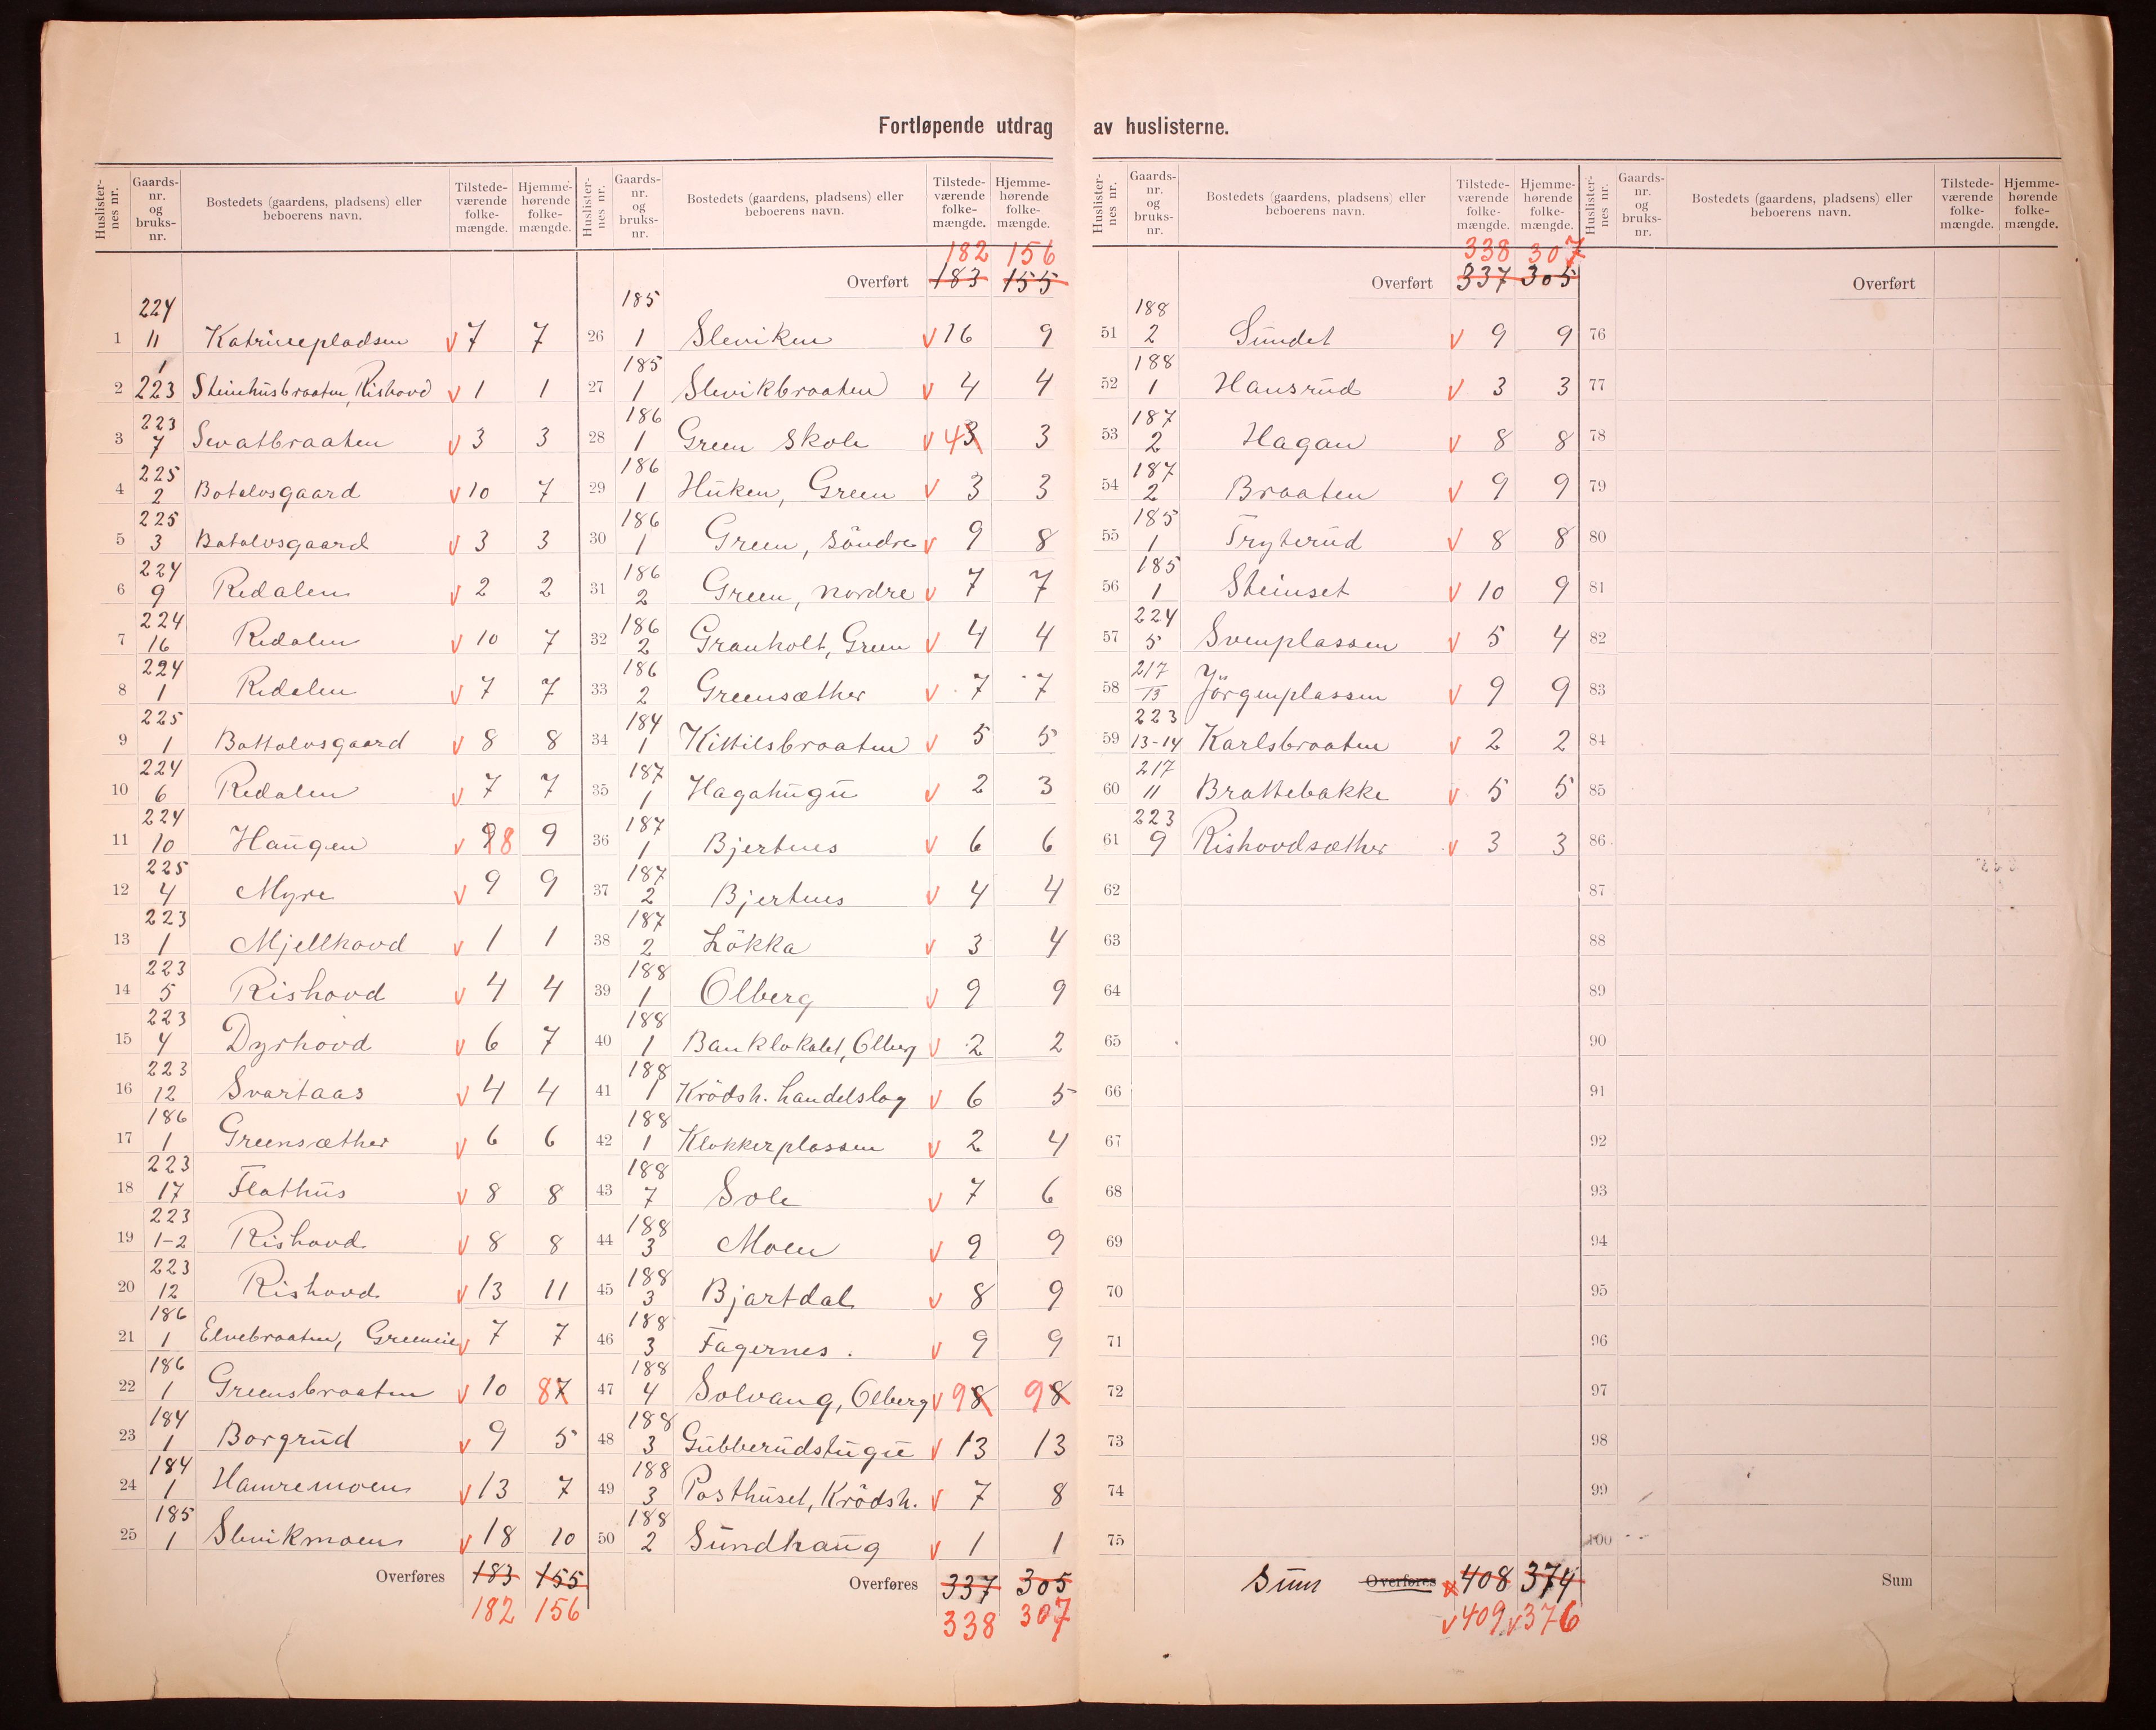 Fortløpende utdrag av huslisterne.
Huslister-nes nr. Gaards-nr. og bruks-nr. Bostedets (gaardens, pladsens) eller beboerens navn. Tilstede-værende folke-mængde. Hjemme-hørende folke-mængde.
1 224 11 Katrinepladsen v 7 7
2 1 223 Steinhusbraaten, Rishovd v 1 1
3 223 7 Sevatbraaten v 3 3
4 225 2 Botolvsgaard v 10 7
5 225 3 Botolvsgaard v 3 3
6 224 9 Redalen v 2 2
7 224 16 Redalen v 10 7
8 224 1 Redalen v 7 7
9 225 1 Bottolvsgaard v 8 8
10 224 6 Redalen v 7 7
11 224 10 Haugen v 9 8 9
12 225 4 Myre v 9 9
13 223 1 Mjellhovd v 1 1
14 223 5 Rishovd v 4 4
15 223 4 Dyrhovd v 6 7
16 223 12 Svartaas v 4 4
17 186 1 Greensæther v 6 6
18 223 17 Flathus v 8 8
19 223 1-2 Rishovd v 8 8
20 223 12 Rishovd v 13 11
21 186 1 Elvebraaten, Greeneie v 7 7
22 186 1 Greensbraaten v 10 8 7
23 184 1 Borgrud v 9 5
24 184 1 Hamremoen v 13 7
25 185 1 Slevikmoen v 18 10
Overføres 183 155
182 156
Huslister-nes nr. Gaards-nr. og bruks-nr. Bostedets (gaardens, pladsens) eller beboerens navn. Tilstede-værende folke-mængde. Hjemme-hørende folke-mængde.
182 156
Overført 183 155
26 185 1 Sleviken v 16 9
27 185 1 Slevikbraaten v 4 4
28 186 1 Green skole v 4 3 3
29 186 1 Huken, Green v 3 3
30 186 1 Green, söndre v 9 8
31 186 2 Green, nordre v 7 7
32 186 2 Granholt, Green v 4 4
33 186 2 Greensæther v 7 7
34 184 1 Kittilsbraaten v 5 5
35 187 1 Hagahugu v 2 3
36 187 1 Bjertnes v 6 6
37 187 2 Bjertnes v 4 4
38 187 2 Lökka v 3 4
39 188 1 Olberg v 9 9
40 188 1 Banklokalet, Olberg v 2 2
41 188 1 Krödsh. handelslag v 6 5
42 188 1 Klokkerplassen v 2 4
43 188 7 Sole v 7 6
44 188 3 Moen v 9 9
45 188 3 Bjartdal v 8 9
46 188 3 Fagernes . v 9 9
47 188 4 Solvang, Olberg v 9 8 9 8
48 188 3 Gubberudstugu v 13 13
49 188 3 Posthuset, Krödsh. v 7 8
50 188 2 Sundhaug v 1 1
Overføres 337 305
338 307
Huslister-nes nr. Gaards-nr. og bruks-nr. Bostedets (gaardens, pladsens) eller beboerens navn. Tilstede-værende folke-mængde. Hjemme-hørende folke-mængde.
338 307
Overført 337 305
51 188 2 Sundet v 9 9
52 188 1 Hansrud v 3 3
53 187 2 Hagan v 8 8
54 187 2 Braaten v 9 9
55 185 1 Tryterud v 8 8
56 185 1 Steinset v 10 9
57 224 5 Svenplassen v 5 4
58 217 13 Jörgenplassen v 9 9
59 223 13-14 Karlsbraaten v 2 2
60 217 11 Brattebakke v 5 5
61 223 9 Rishovdsæther v 3 3
62
63
64
65
66
67
68
69
70
71
72
73
74
75
Sum Overføres 408 374
v 409 v 376
Huslister-nes nr. Gaards-nr. og bruks-nr. Bostedets (gaardens, pladsens) eller beboerens navn. Tilstede-værende folke-mængde. Hjemme-hørende folke-mængde.
Overført
76
77
78
79
80
81
82
83
84
85
86
87
88
89
90
91
92
93
94
95
96
97
98
99
100
Sum